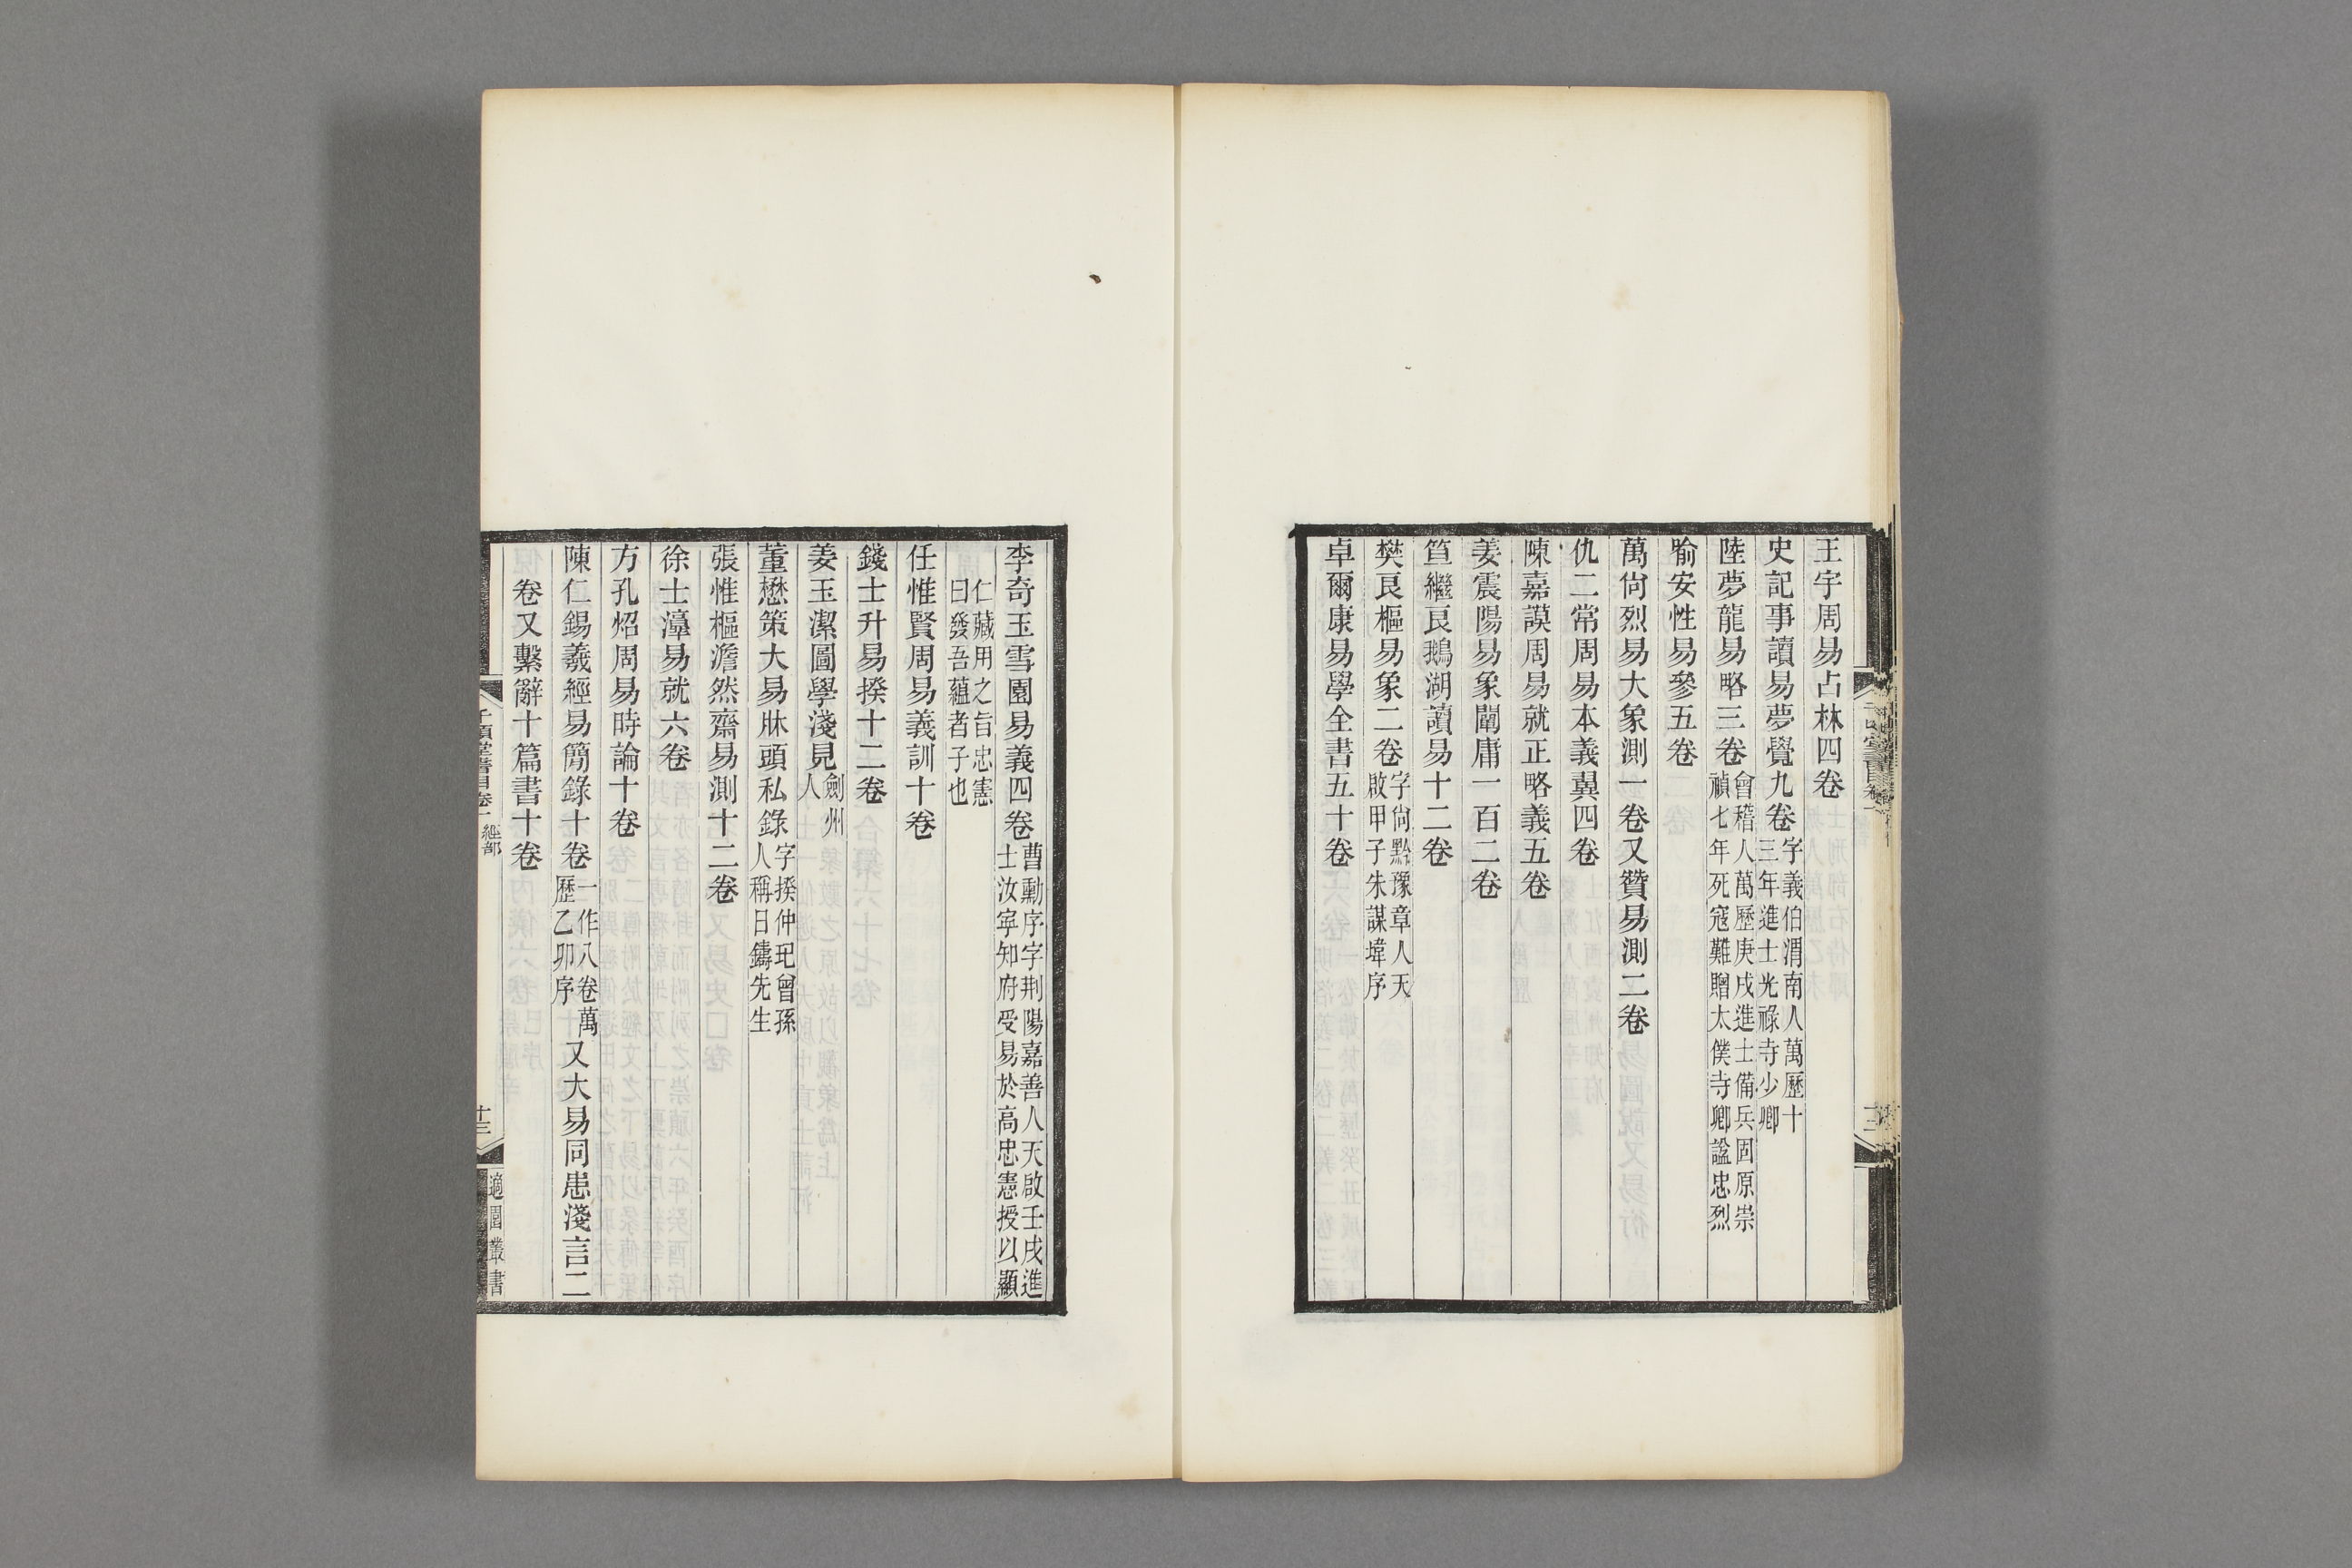 王宇周易占林四卷
史記事讀易夢覺九卷字義伯渭南人萬歷十三年進士光祿寺少卿
陸夢龍易略三卷會稽人萬歷庚戌進士備兵固原崇禎七年死寇難贈太僕寺卿謚忠烈
喻安性易參五卷
萬尙烈易大象測一卷又贊易測二卷
仇二常周易本義翼四卷
陳嘉謨周易就正略義五卷
姜震陽易象闡庸一百二卷
笪繼良鵝湖讀易十二卷
樊良樞易象二卷字尙黙豫章人天啟甲子朱謀㙔序
卓爾康易學全書五十卷
李奇玉雪園易義四卷曹勳序字荆陽嘉善人天啟壬戌進士汝寧知府受易於高忠憲授以顯
仁藏用之旨忠憲曰發吾蘊者子也
任惟賢周易義訓十卷
錢士升易揆十二卷
姜玉潔圖學淺見劍州人
董懋策大易牀頭私錄字揆仲玘曾孫人稱日鑄先生
張惟樞澹然齋易測十二卷
徐士𣽈易就六卷
方孔炤周易時論十卷
陳仁錫羲經易簡錄十卷一作八卷萬歷乙卯序又大易同患淺言二
卷又繫辭十篇書十卷
千頃堂書目卷一 經部
十三
適園叢書